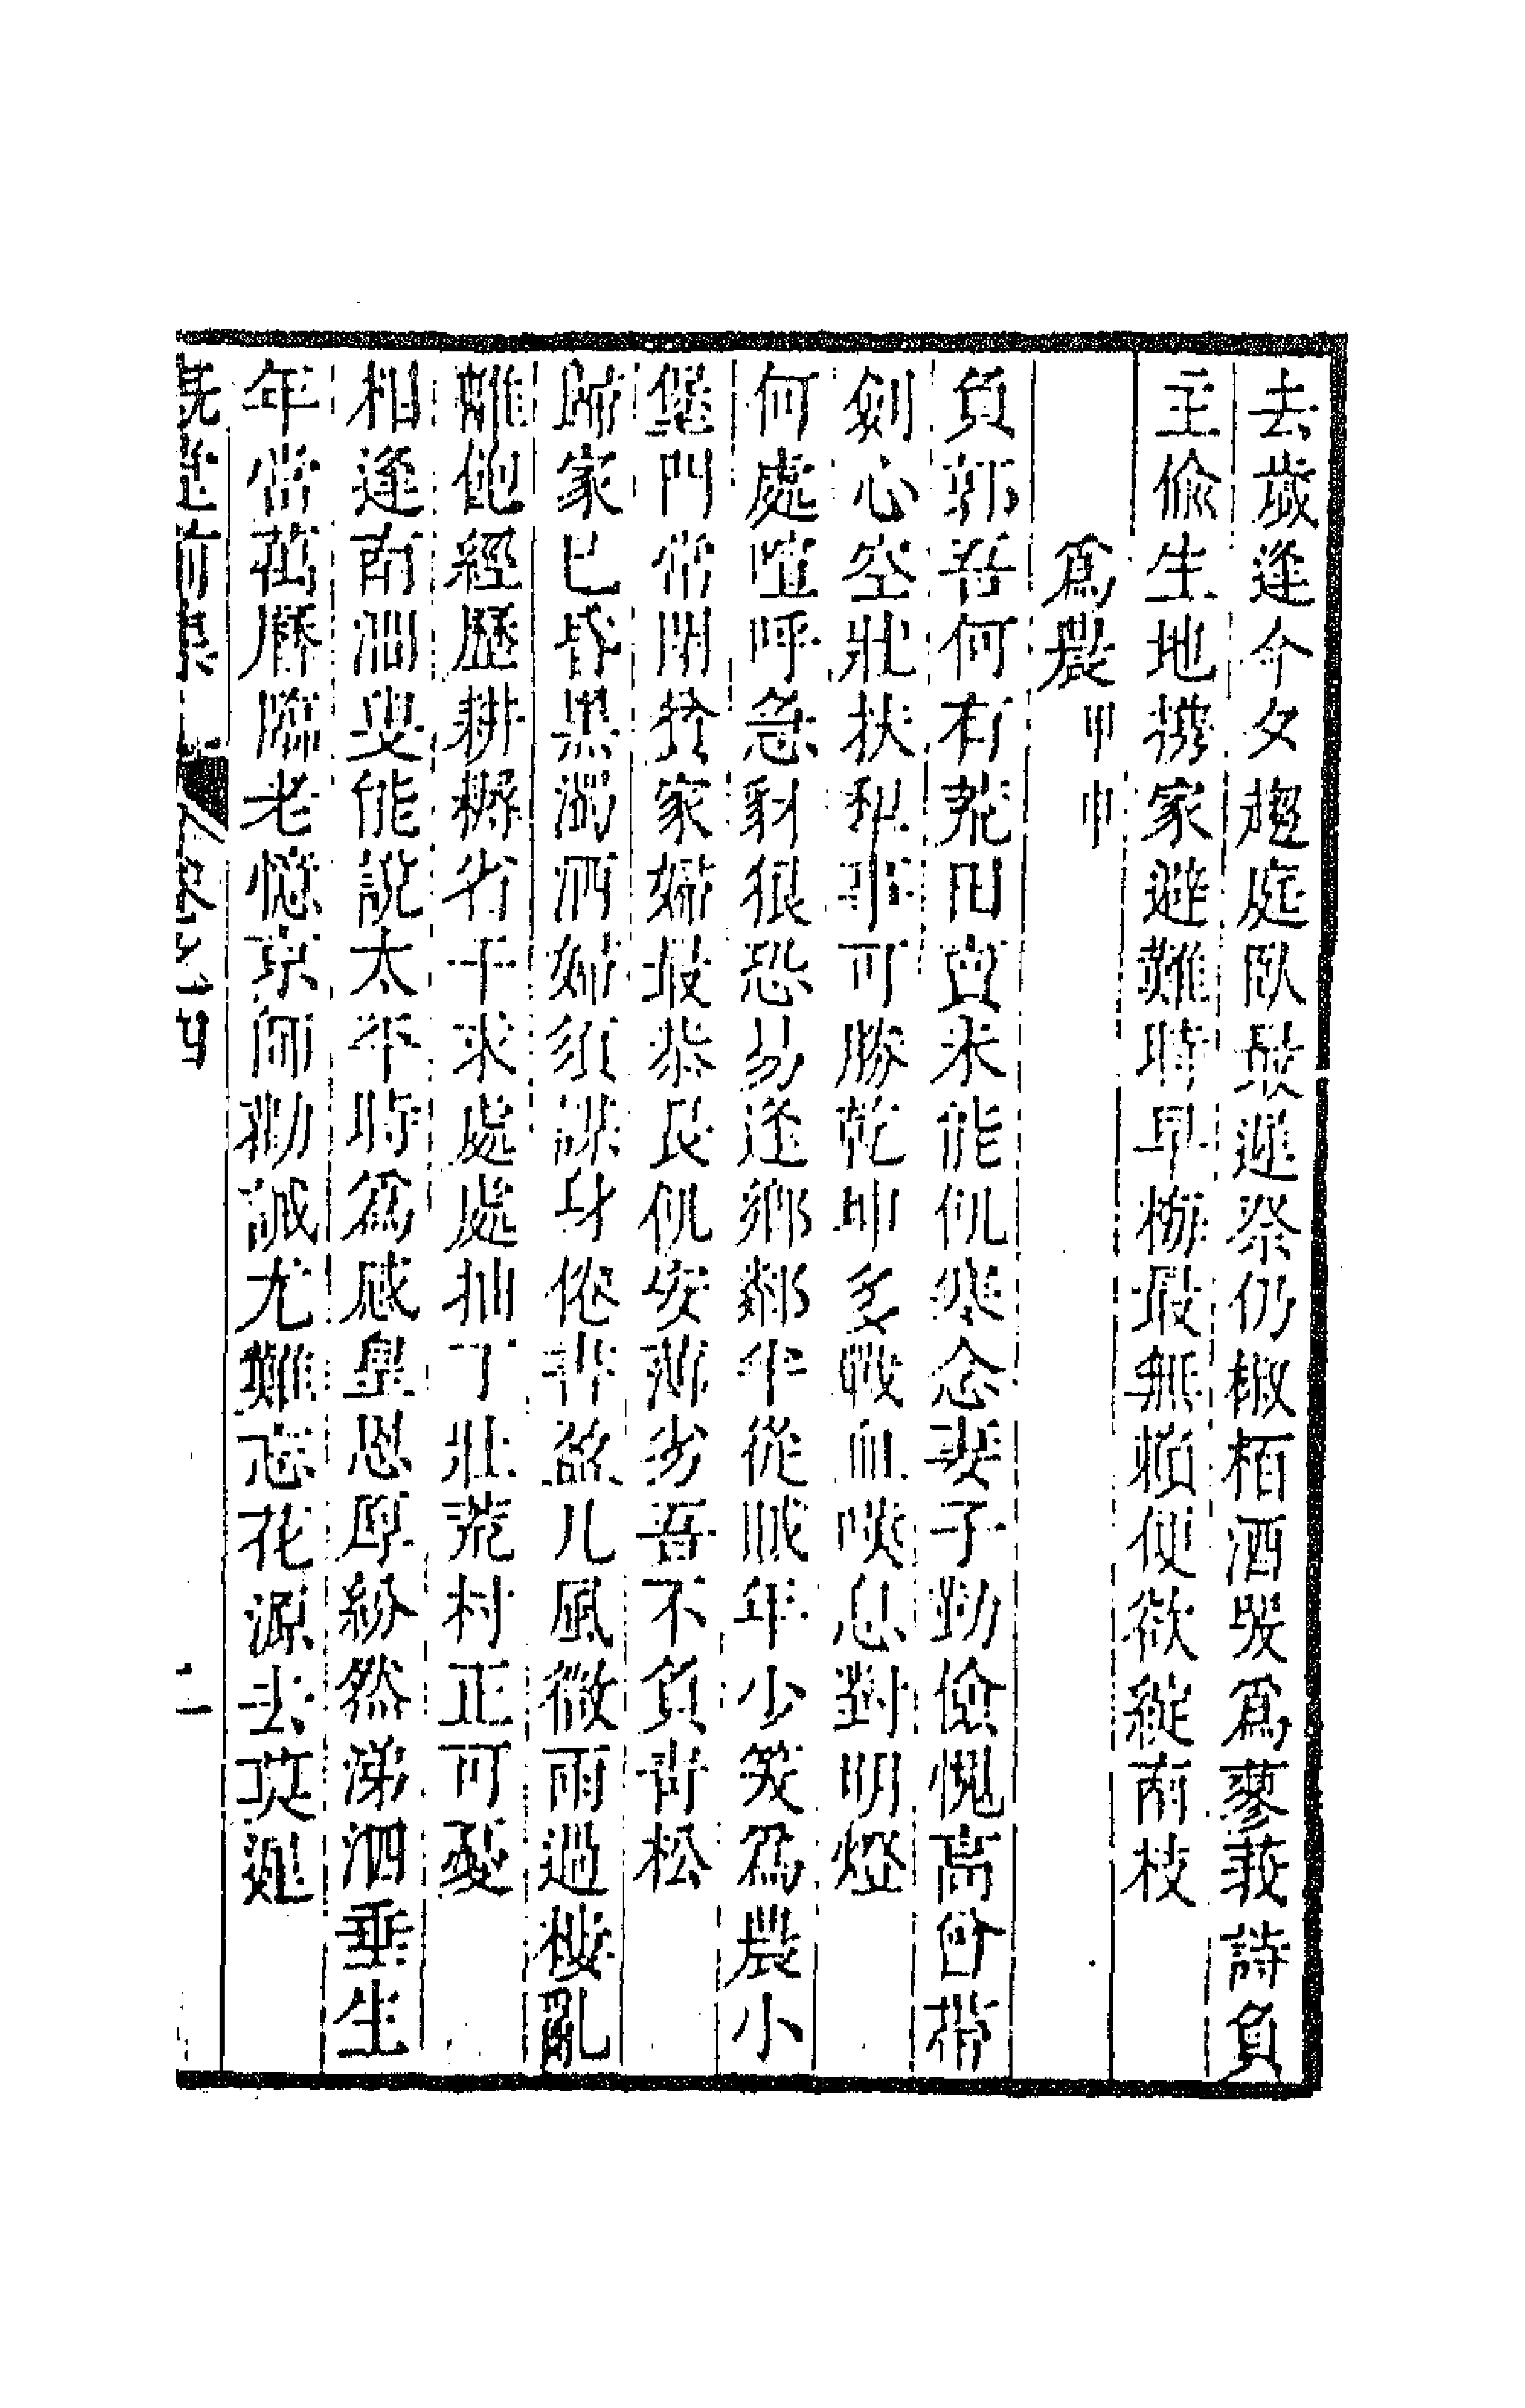 去歲逢今夕趨庭臥最遲祭仍椒栢酒哭爲蓼莪詩負
主偷生地攜家避難時早梅最無賴便欲縱南枝
爲農甲申
負郭吾何有荒田賣未能飢寒念妻子勤儉愧高曾帶
劍心空壯扶犁事可勝乾坤多戰血嘆息對明燈
何處喧呼急豺狼恐易逢鄉鄰半從賊年少笑爲農小
堡門常閉於家婦最恭民飢安薄劣吾不負青松
歸家已昏黑濁酒婦須謀身倦書盈几風微雨過樓亂
離他經歷耕耨省干求處處抽丁壯荒村正可憂
相逢南澗叟能說太平時爲感皇恩厚紛然涕泗垂生
年當萬曆臨老憶京師勸誡尤難忘花源去莫遲
卷之四
二